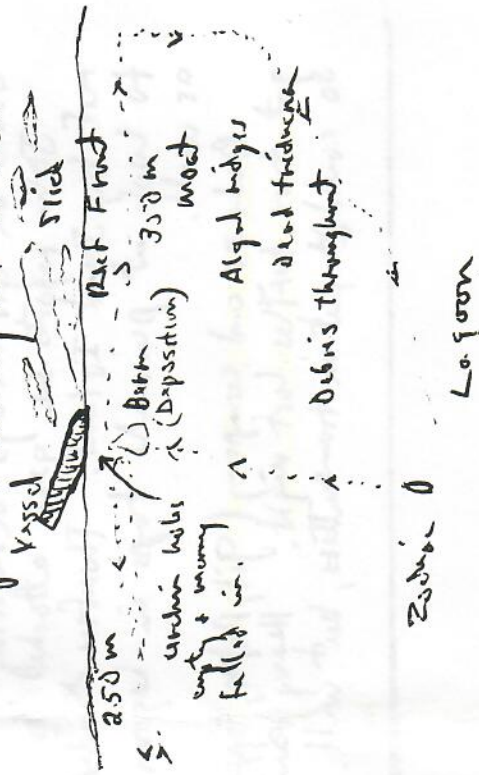 Vessel
Slick
250 m
Reef Front
Berm
(Deposition)
350 m
moat
urchin holes
empty + many
filled in.
Algal ridges
Dead tridacna
Debris throughout
Zodiac
Lagoon